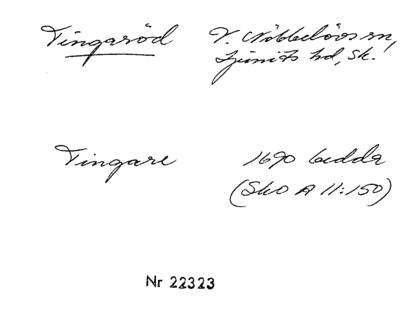 Tingaröd V. Nöbbelövs sn,
Ljunits hd, Sk.
Tingare 1690 ledda
(SkO A 11:150)
Nr 22323